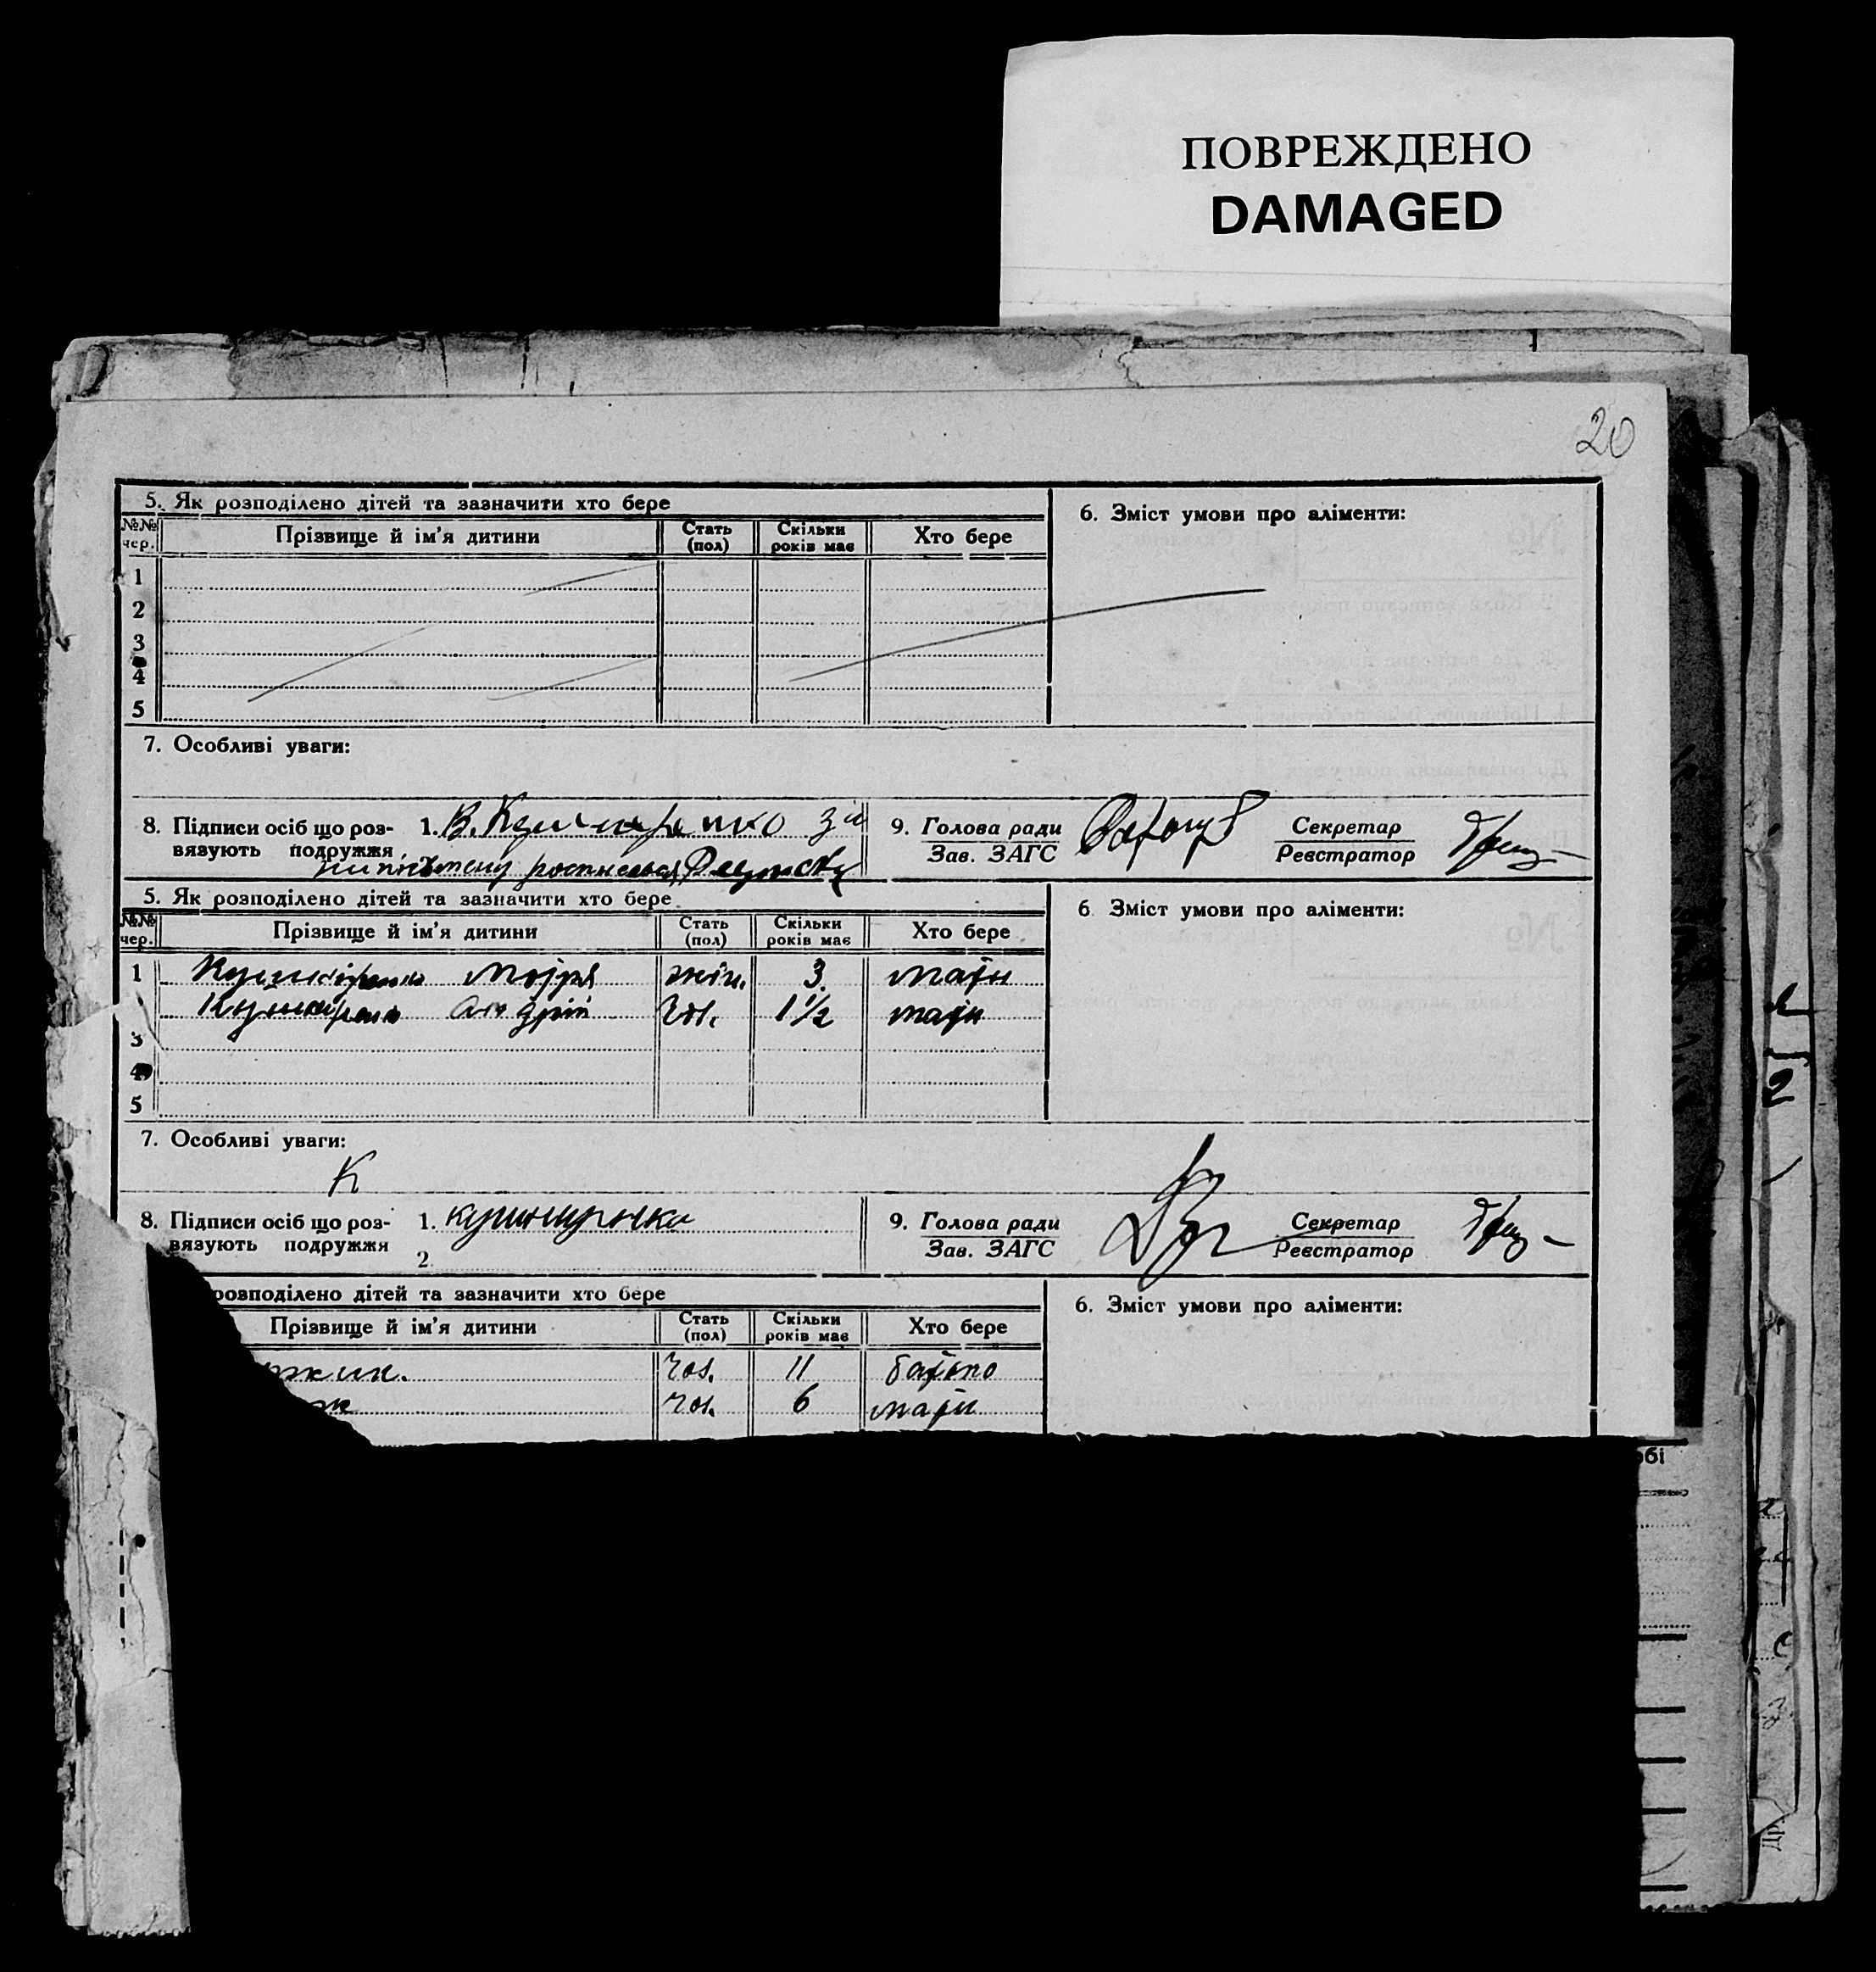 ПОВРЕЖДЕНО
DAMAGED
20
5. Як розподілено дітей та зазначити хто бере
6. Зміст умови про аліменти:
№№ чер.
Прізвище й ім'я дитини
Стать (пол)
Скільки років має
Хто бере
1
2
3
4
5
7. Особливі уваги:
8. Підписи осіб що роз-
вязують подружжя
1. В. за
9. Голова ради
Зав. ЗАГС
Секретар
Реєстратор
5. Як розподілено дітей та зазначити хто бере
6 Зміст умови про аліменти:
№№ чер.
Прізвище й ім'я дитини
Стать (пол)
Скільки років має
Хто бере
1 Кушніренко жін. 3 мати
Кушніренко Андрій чол. 1½ мати
3
4
5
7. Особливі уваги:
К
8. Підписи осіб що роз-
вязують подружжя
1.
2
9. Голова ради
Зав. ЗАГС
Секретар
Реєстратор
розподілено дітей та зазначити хто бере
6. Зміст умови про аліменти:
Прізвище й ім'я дитини
Стать (пол)
Скільки років має
Хто бере
чол. 11 батько
чол. 6 мати
обі